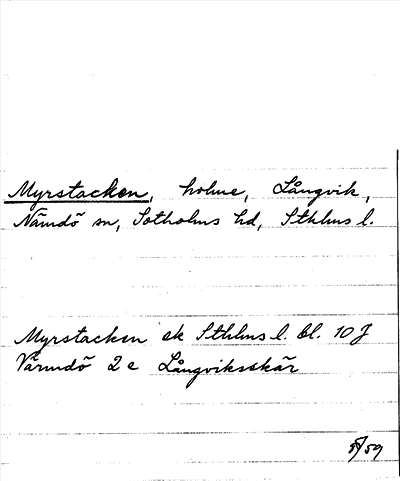 Myrstacken, holme, Långvik,
Nämdö sn, Sotholms hd, Sthlms l.
Myrstacken ek Sthlms l. bl. 10 J
Värmdö 2 e Långviksskär